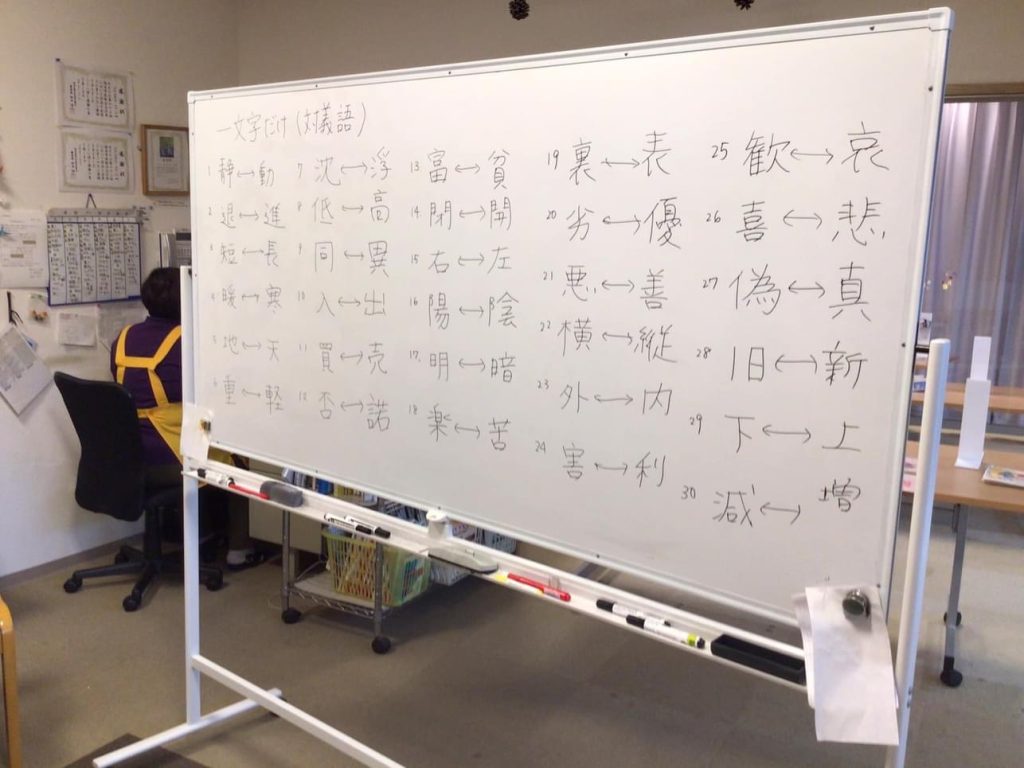 一文字だけ(対義語)
1 静↔動
2 退↔進
3 短↔長
4 暖↔寒
5 地↔天
6 重↔軽
7 沈↔浮
8 低↔高
9 同↔異
10 入↔出
11 買↔売
12 否↔諾
13 富↔貧
14 閉↔開
15 右↔左
16 陽↔陰
17 明↔暗
18 楽↔苦
19 裏↔表
20 劣↔優
21 悪↔善
22 横↔縦
23 外↔内
24 害↔利
25 歓↔哀
26 喜↔悲
27 偽↔真
28 旧↔新
29 下↔上
30 減↔増